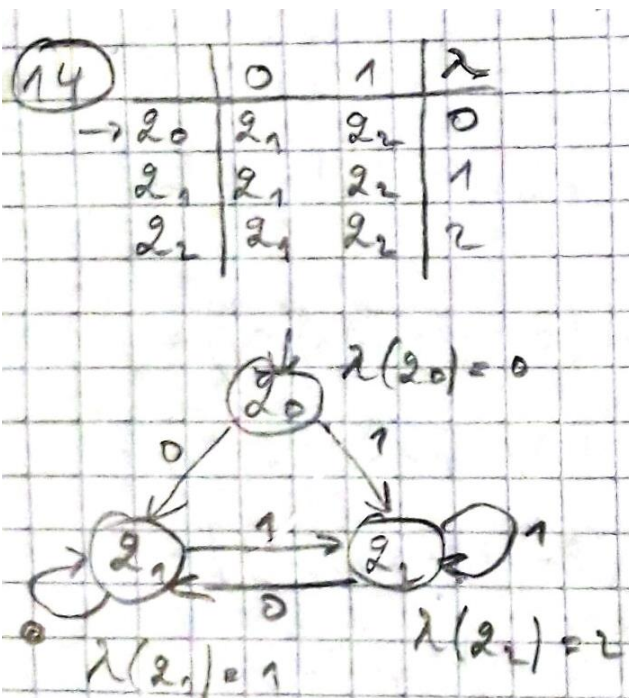 14
0 1 λ
→ q₀ q₁ q₂ 0
q₁ q₁ q₂ 1
q₂ q₁ q₂ 2
q₀ λ(q₀) = 0
0 1
q₁ 1 q₂ 1
0
0
λ(q₁) = 1 λ(q₂) = 2